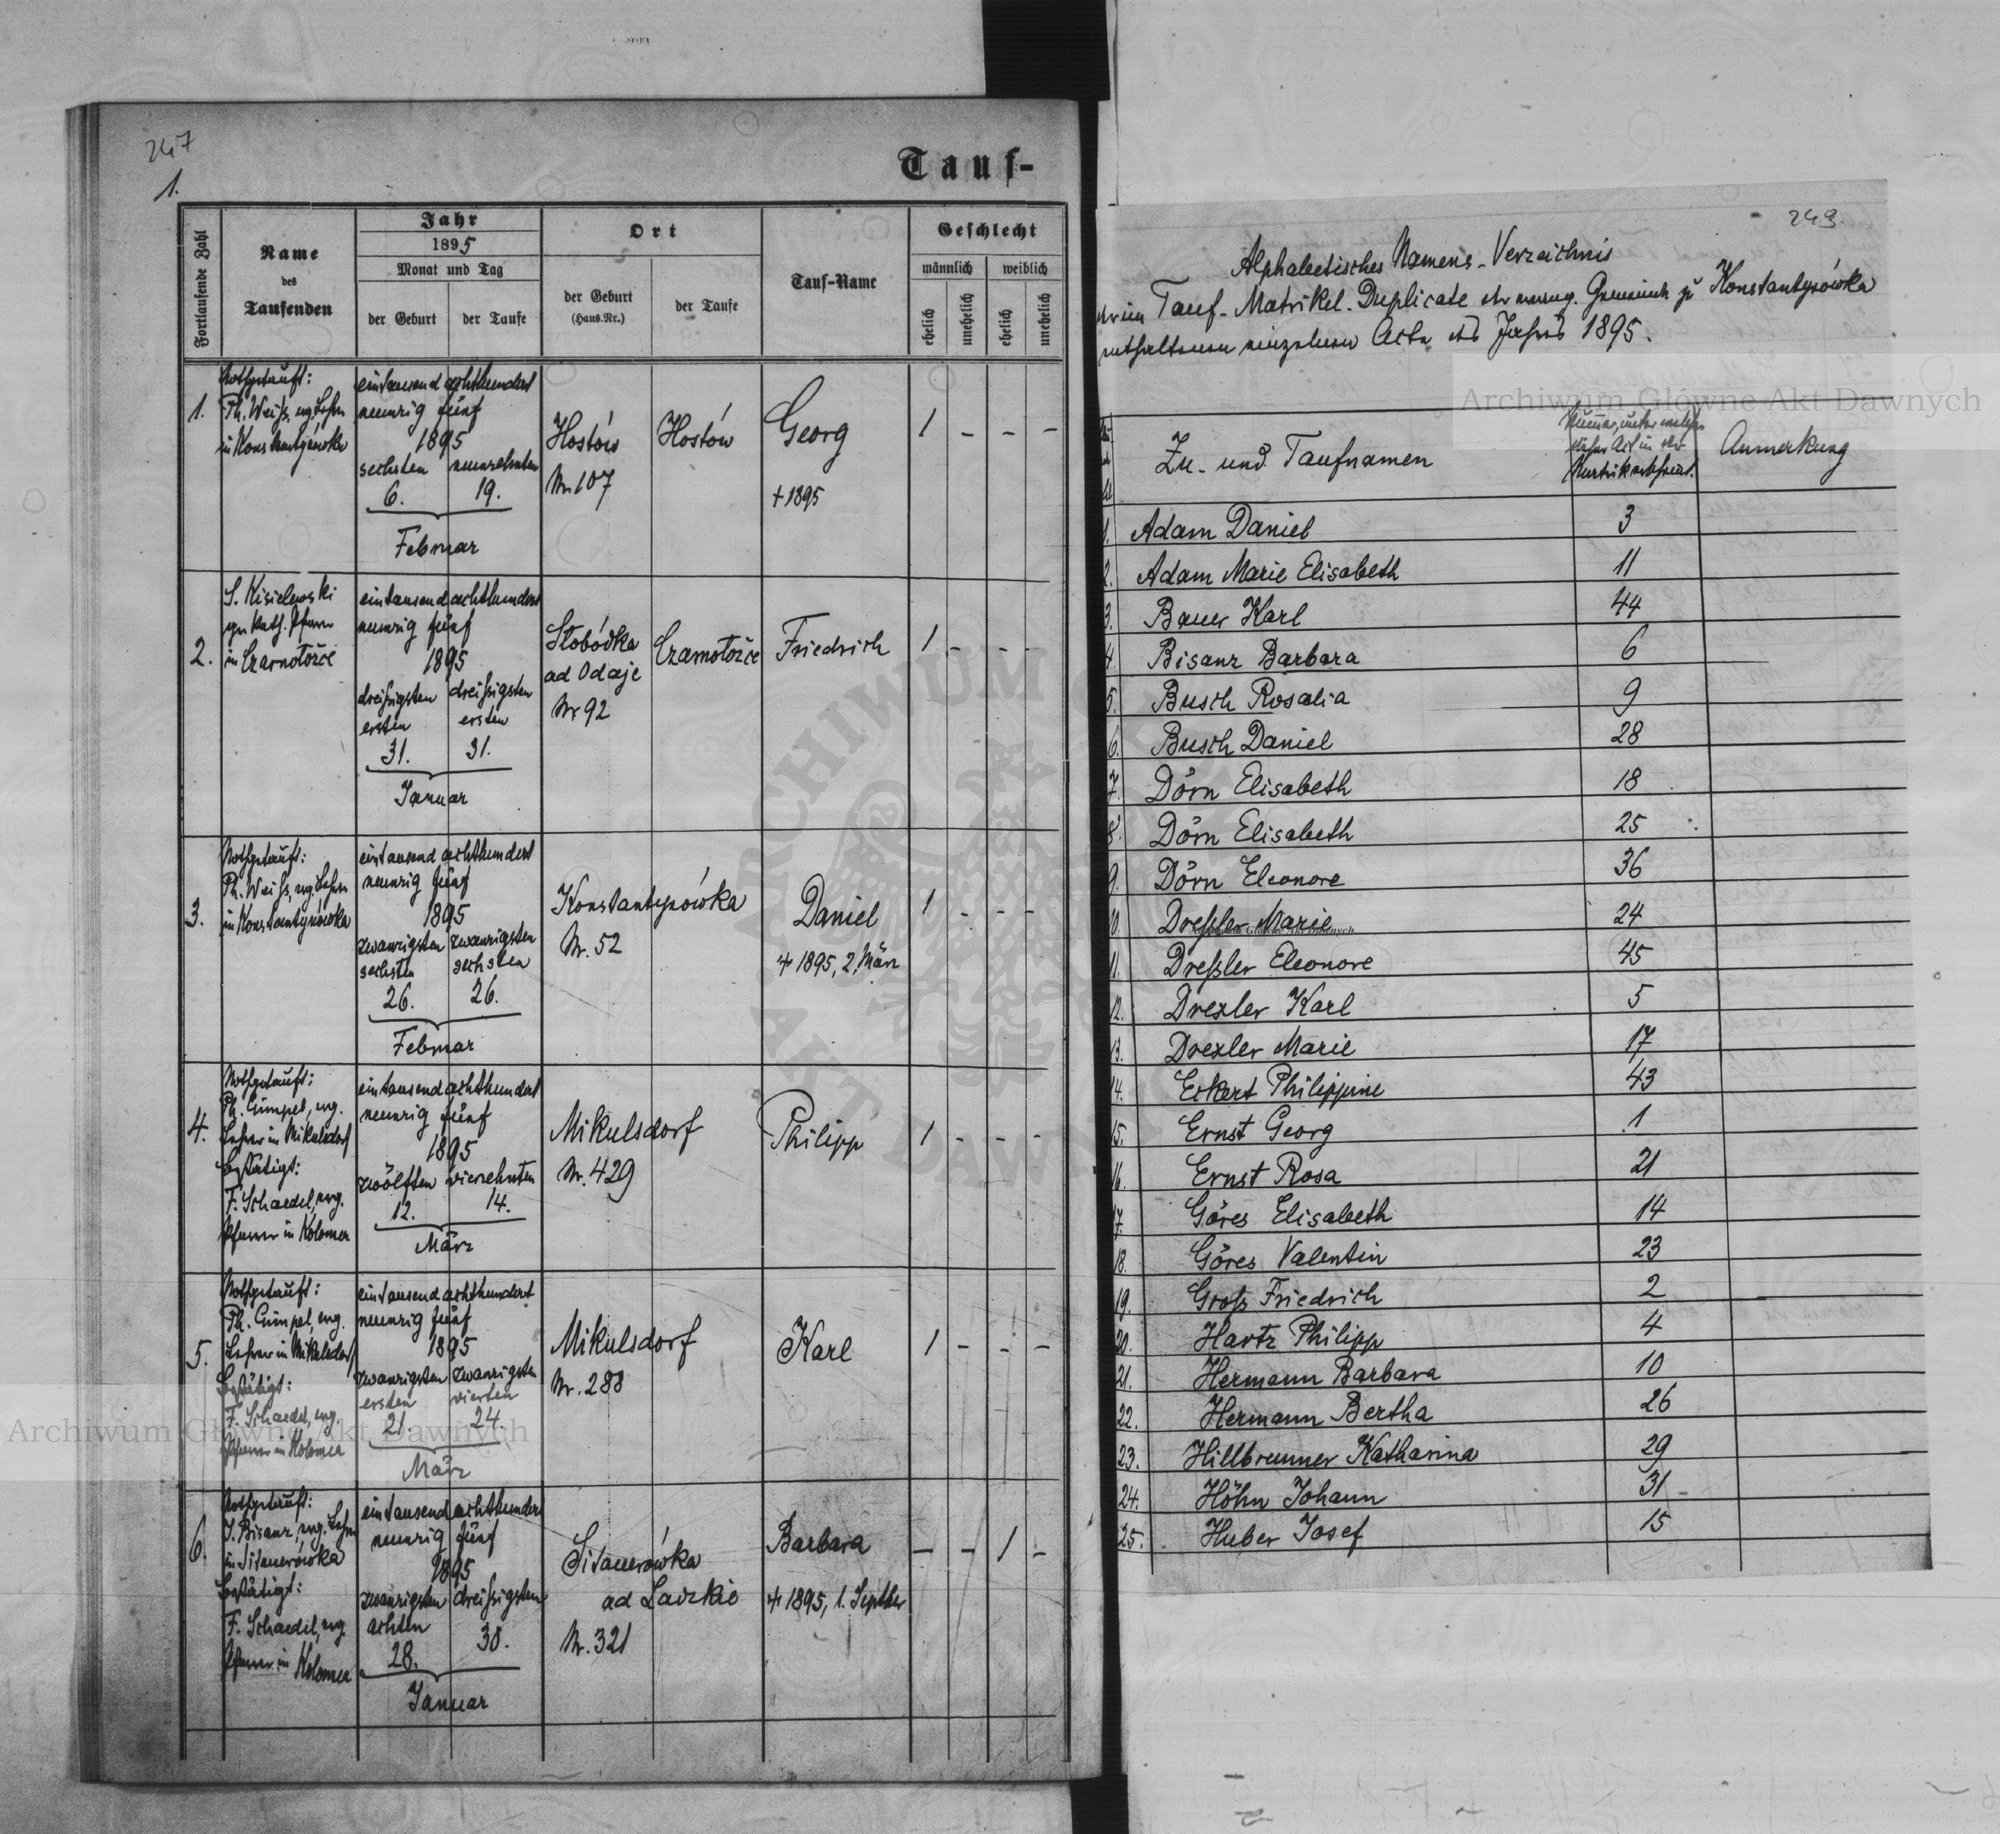 247
1.
Tauf-
Fortlaufende Zahl
Name
des
Taufenden
Jahr
1895
Monat und Tag
der Geburt
der Taufe
Ort
der Geburt
(Haus-Nr.)
der Taufe
Tauf-Name
Geschlecht
männlich
weiblich
ehelich
unehelich
ehelich
unehelich
1.
Nothgetauft:
Ph. Weiß, evg. Lehrer
in Konstantynówka
eintausend achthundert
neunzig fünf
1895
sechsten
neunzehnten
6.
19.
Februar
Hostów
Nr. 107
Hostów
Georg
+ 1895
1 - - -
2.
S. Kisielewski
gr. kath. Pfarrer
in Czarnołożce
eintausend achthundert
neunzig fünf
1895
dreißigsten
ersten
dreißigsten
ersten
31.
31.
Januar
Słobódka
ad Odaje
Nr 92
Czarnołożce
Friedrich
1 - - -
3.
Nothgetauft:
Ph. Weiß, evg. Lehrer
in Konstantynówka
eintausend achthundert
neunzig fünf
1895
zwanzigsten
sechsten
zwanzigsten
sechsten
26.
26.
Februar
Konstantynówka
Nr. 52
Daniel
+ 1895, 2. März
1 - - -
4.
Nothgetauft:
Ph. Gümpel, evg.
Lehrer in Mikulsdorf
bestätigt:
F. Schaedel, evg.
Pfarrer in Kolomea
eintausend achthundert
neunzig fünf
1895
zwölften
vierzehnten
12.
14.
März
Mikulsdorf
Nr. 429
Philipp
1 - - -
5.
Nothgetauft:
Ph. Gümpel, evg.
Lehrer in Mikulsdorf
bestätigt:
F. Schaedel, evg.
Pfarrer in Kolomea
eintausend achthundert
neunzig fünf
1895
zwanzigsten
ersten
zwanzigsten
vierten
21
24.
März
Mikulsdorf
Nr. 288
Karl
1 - - -
6.
Nothgetauft:
J. Bisanz, evg. Lehrer
in Sitauerówka
bestätigt:
F. Schaedel, evg.
Pfarrer in Kolomea
eintausend achthundert
neunzig fünf
1895
zwanzigsten
achten
dreißigsten
28.
30.
Januar
Sitauerówka
ad Łazkie
Nr. 321
Barbara
+ 1895, 1. Septber
- - 1 -
249.
Alphabetisches Namens-Verzeichnis
der im Tauf-Matrikel-Duplicate der evang. Gemeinde zu Konstantynówka
enthaltenen einzelnen Acte des Jahres 1895.
Zu- und Taufnamen
Nummer, unter welcher
dieser Act in der
Matrik erscheint.
Anmerkung
1. Adam Daniel 3
2. Adam Marie Elisabeth 11
3. Bauer Karl 44
4. Bisanz Barbara 6
5. Busch Rosalia 9
6. Busch Daniel 28
7. Dörn Elisabeth 18
8. Dörn Elisabeth 25
9. Dörn Eleonore 36
10. Dreßler Marie 24
11. Dreßler Eleonore 45
12. Drexler Karl 5
13. Drexler Marie 17
14. Eckert Philippine 43
15. Ernst Georg 1
16. Ernst Rosa 21
17. Göres Elisabeth 14
18. Göres Valentin 23
19. Groß Friedrich 2
20. Hartz Philipp 4
21. Hermann Barbara 10
22. Hermann Bertha 26
23. Hillbrunner Katharina 29
24. Höhn Johann 31
25. Huber Josef 15
Archiwum Główne Akt Dawnych
Archiwum Główne Akt Dawnych
ARCHIWUM
AKT DAWNYCH